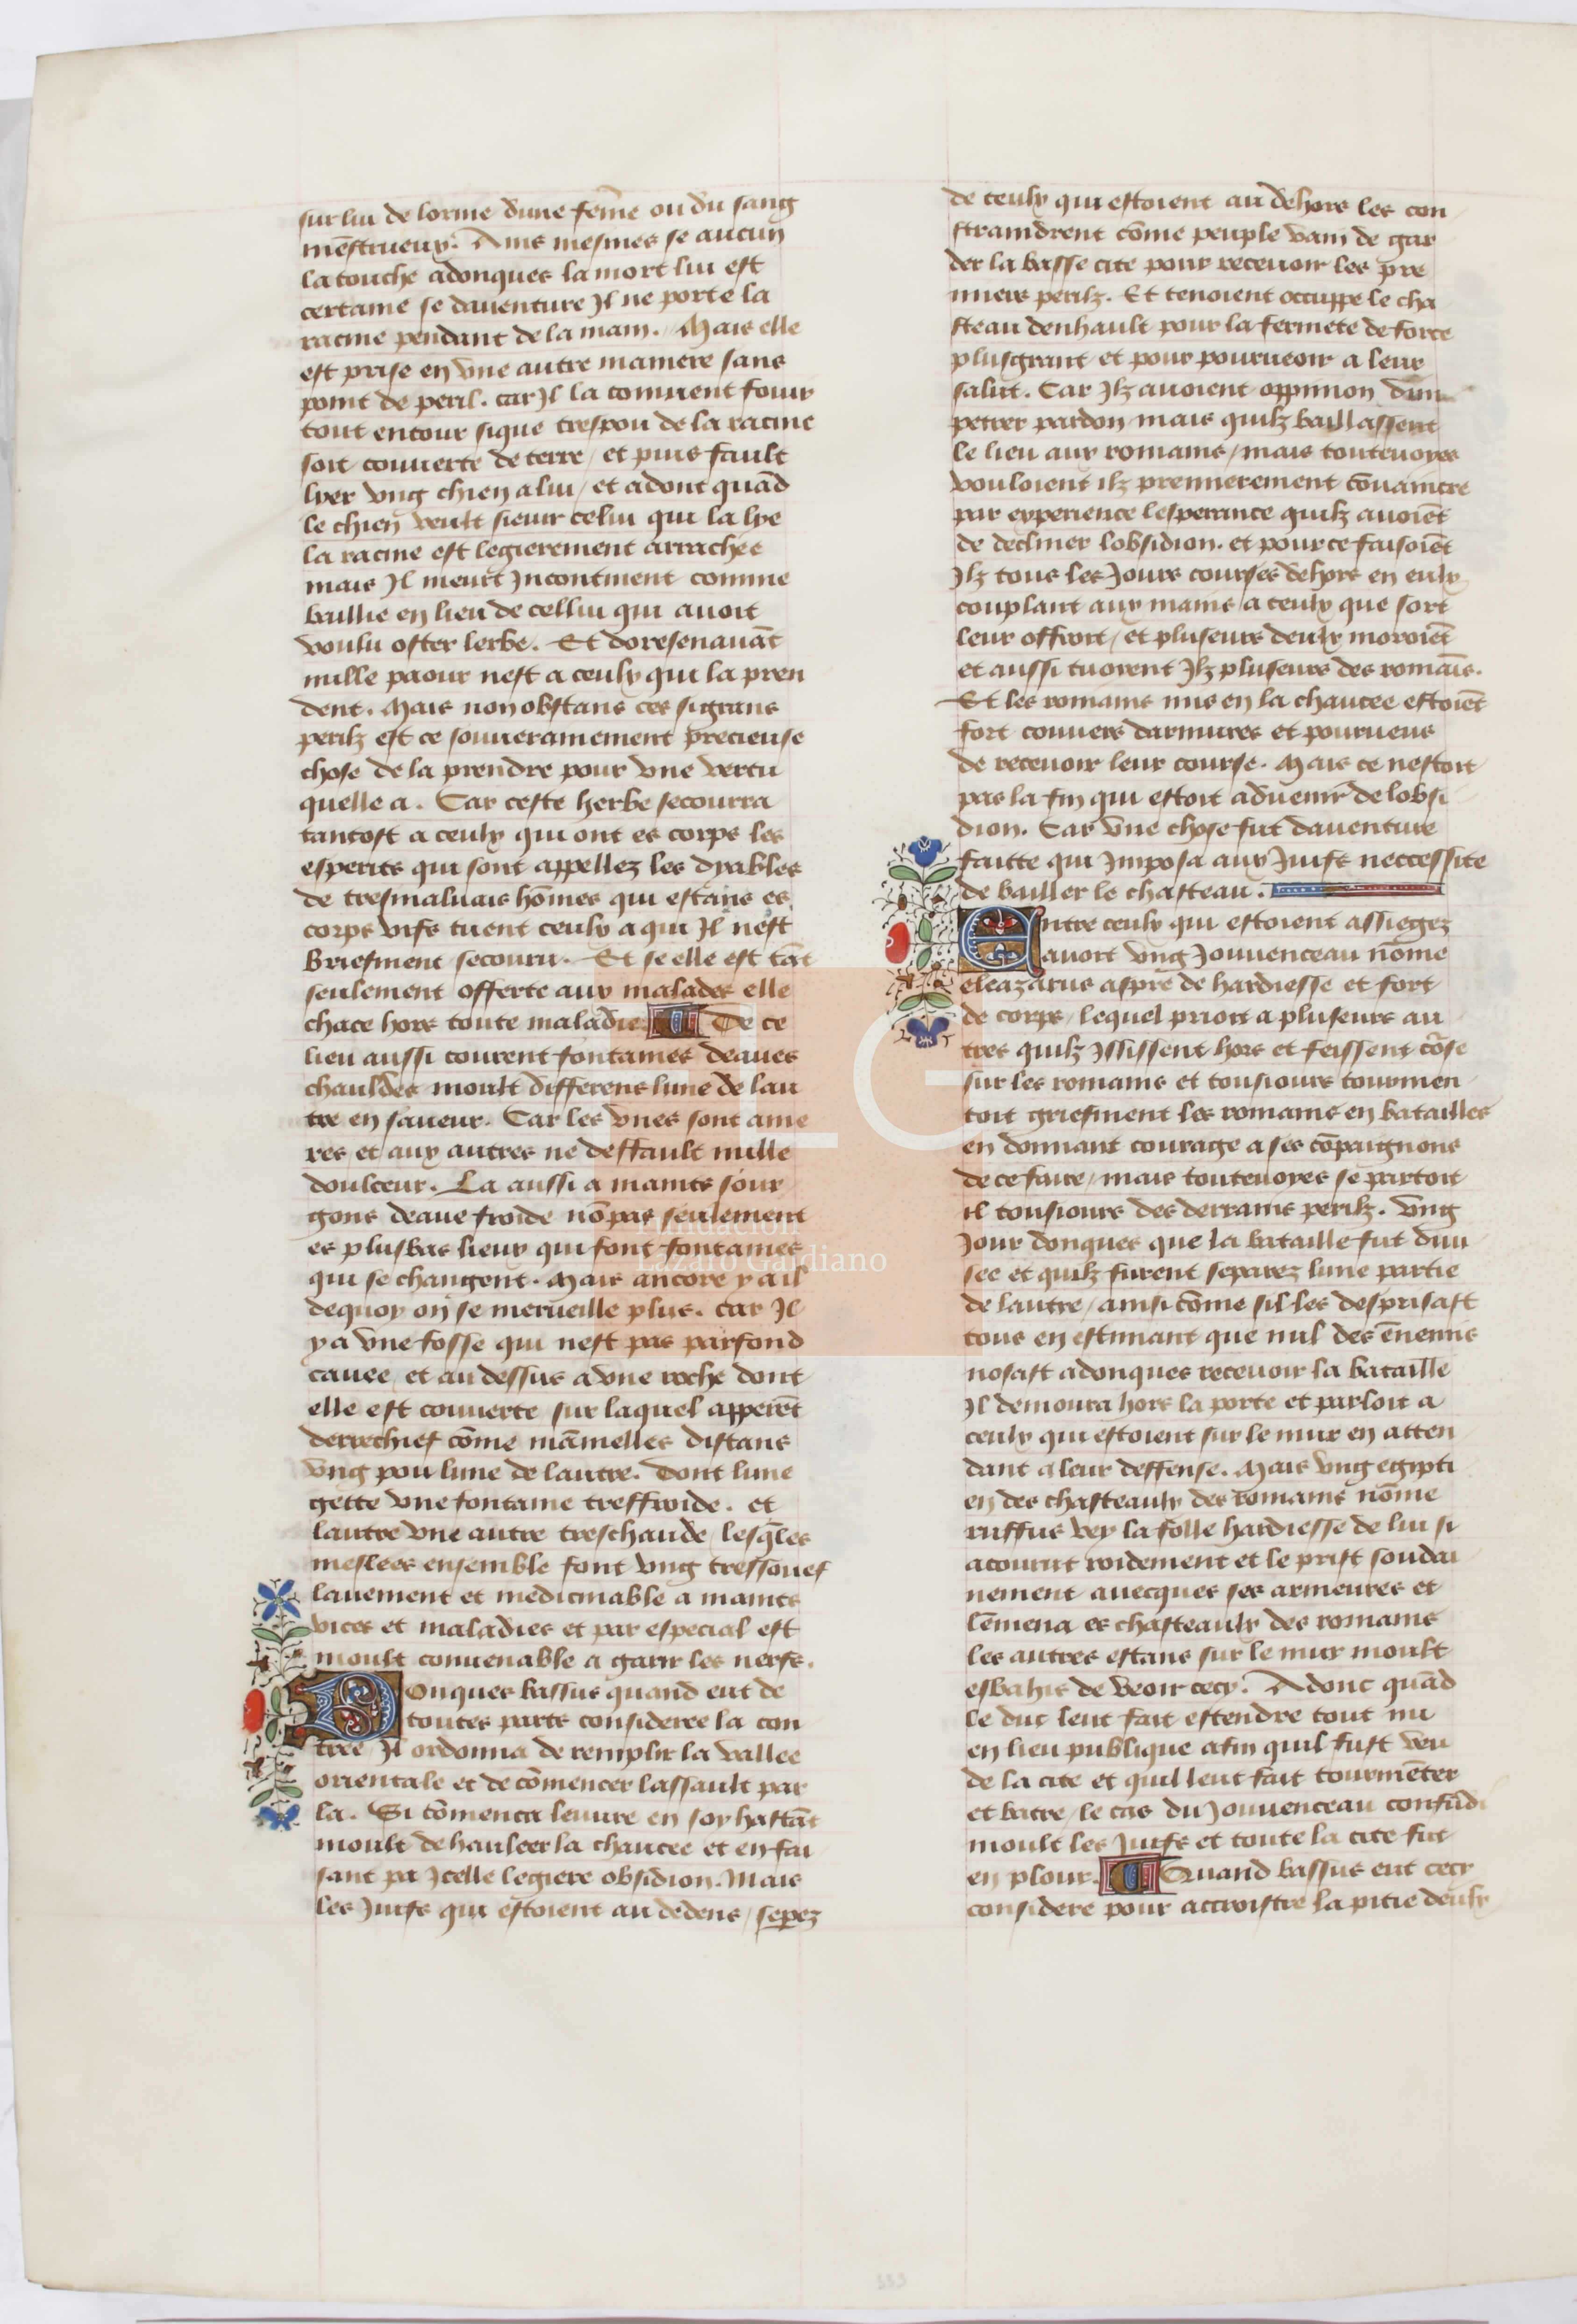 sur lui de lorine dune fem̄e ou du sang
mēstrueux. Ains mesmes se aucun
la touche adonques la mort lui est
certaine se dauenture Il ne porte la
racine pendant de la main. Mais elle
est prise en vne autre maniere sans
point de peril. car Il la conuient fouir
tout entour sique trespou de la racine
soit couuerte de terre / et puis fault
lyer vng chien a lui / et adont quād
le chien veult sieuir celui qui la lye
la racine est legierement arrachee
mais Il meurt Incontinent comme
baillie en lieu de cellui qui auoit
voulu oster lerbe. Et doresenauāt
nulle paour nest a ceulx qui la pren
dent. Mais non obstans ces si grans
perilz est ce souuerainement precieuse
chose de la prendre pour vne vertu
quelle a. Car ceste herbe secourra
tantost a ceulx qui ont es corps les
esperits qui sont appellez les dyables
de tresmaluais hōmes qui estans es
corps vifs tuent ceulx a qui Il nest
briefment secouru. Et se elle est tāt
seulement offerte aux malades elle
chace hors toute maladie. De ce
lieu aussi courent fontaines deaues
chauldes moult differens lune de lau
tre en saueur. Car les vnes sont ame
res et aux autres ne deffault nulle
doulceur. La aussi a maints sour
gons deaue froide nō pas seulement
es plusbas lieux qui font fontaines
qui se changent. Mais ancore y a il
dequoy on se merueille plus. car Il
y a vne fosse qui nest pas parfond
cauee / et au dessus a vne roche dont
elle est couuerte sur laquel apperēt
derrechief cōme māmelles distans
vng pou lune de lautre. Dont lune
gette vne fontaine treffroide. et
lautre vne autre treschaude / lesq̄les
meslees ensemble font vng tressouef
lauement et medicinable a maints
vices et maladies et par especial est
moult conuenable a garir les nerfs.
Donques bassus quand eut de
toutes parts consideree la con
tree Il ordonna de remplir la vallee
orientale et de cōmencer lassault par
la. Si cōmenca leuure en soy hastāt
moult de haulcer la chaucee et en fai
sant par Icelle legiere obsidion. Mais
les Juifs qui estoient au dedens / sepez
de ceulx qui estoient au dehors les con
straindrent cōme peuple vain de gar
der la basse cite pour receuoir les pre
miers perilz. Et tenoient occuppe le cha
steau denhault pour la fermete de force
plusgrant et pour pourueoir a leur
salut. Car Ilz auoient oppinion dim
petrer pardon mais quilz baillassent
le lieu aux romains / mais touteuoyes
vouloient ilz premierement cōuaincre
par experience lesperance quilz auoiēt
de decliner lobsidion. et pource faisoiēt
Ilz tous les Jours courses dehors en eulx
couplant aux mains a ceulx que sort
leur offroit / et pluseurs deulx moroiēt
et aussi tuoient Ilz pluseurs des romāis.
Et les romains mis en la chaucee estoiēt
fort couuers darmures et pourueus
de receuoir leur course. Mais ce nestoit
pas la fin qui estoit aduenir de lobsi
dion. Car vne chose fut dauenture
faitte qui Imposa aux Juifs neccessite
de bailler le chasteau.
Entre ceulx qui estoient assiegez
auoit vng Jouuenceau nōme
eleazarus aspre de hardiesse et fort
de corps / lequel prioit a pluseurs au
tres quilz Ississent hors et feissent cōrse
sur les romains et tousiours tourmen
toit griefment les romains en batailles
en donnant courage a ses cōpaignons
de ce faire / mais touteuoyes se partoit
il tousiours des derrains perilz. Vng
Jour donques que la bataille fut diui
see et quilz furent separez lune partie
de lautre / ainsi cōme sil les desprisast
tous en estimant que nul des ēnemis
nosast adonques receuoir la bataille
Il demoura hors la porte et parloit a
ceulx qui estoient sur le mur en atten
dant a leur deffense. Mais vng egipti
en des chasteaulx des romains nōme
ruffus vey la folle hardiesse de lui si
acourut roidement et le prist soudai
nement auecques ses armeures et
lēmena es chasteaulx des romains
les autres estans sur le mur moult
esbahis de veoir cecy. Adonc quād
le duc leut fait estendre tout nu
en lieu publique afin quil fust veu
de la cite et quil leut fait tourmēter
et batre / le cas du Jouuenceau confūdi
moult les Juifs et toute la cite fut
en plour. Quand bassus eut cecy
considere pour accroistre la pitie deulx
Fundación
Lázaro Galdiano